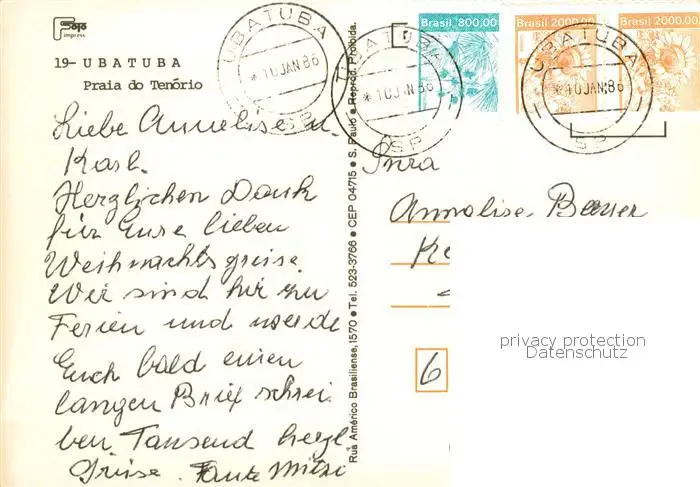 Foto
impress
19- UBATUBA
Praia do Tenório
Liebe Annelise u.
Karl.
Herzlichen Dank
für Eure lieben
Weihnachtsgrüsse.
Wir sind hir zu
Ferien und werde
Euch bald einen
langen Brief schrei
ben. Tausend herzl
Grüsse. Tante Mitzi
Rua Américo Brasiliense, 1570 • Tel. 523-3766 • CEP 04715 • S. Paulo • Reprod. Proibida.
Brasil 800,00
Brasil 2000,00
Brasil 2000,00
UBATUBA
*10 JAN 86
SP
UBATUBA
*10 JAN 86
SP
UBATUBA
*10 JAN 86
SP
Snra
Annalise
6
privacy protection
Datenschutz